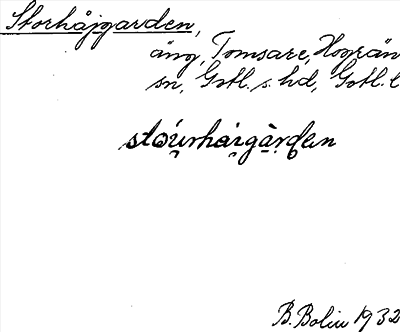 Storhåjgarden,
äng, Tomsare, Hogrän
sn, Gotl. s. hd, Gotl. l
stóu̯rhai̯gàrdɐn
B. Bolin 1932